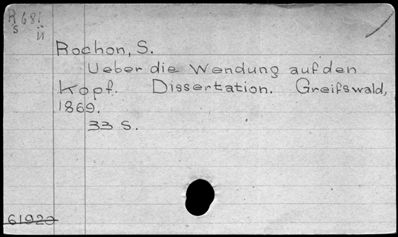 R 681
S
Rochon, S.
Ueber die Wendung auf den
Kopf. Dissertation. Greifswald,
1869.
33 S.
61923